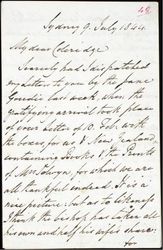 Sydney 9. July 1844.
My dear Coleridge
Scarcely had I dispatched
my letter to you by the Jane
Goudie last week, when the
gratifying arrival took place
of your letter of 10. Feb. with
the boxes for us & New Zealand,
containing books & the Prints
of Mrs. Selwyn for which we are
all thankful indeed. It is a
nice picture: but as to likeness
I think the bishop has taken all
his own and half his wife's share:
for